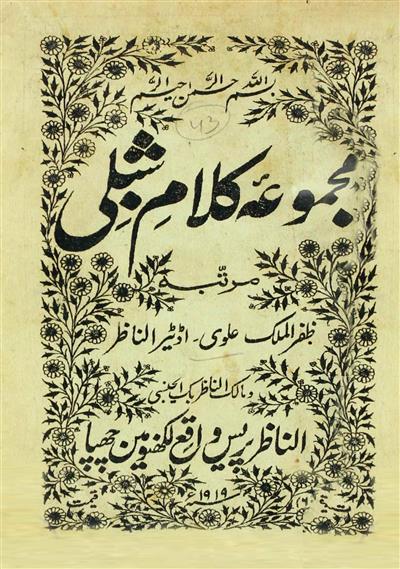 بسم اللہ الرحمن الرحیم
۴۳
مجموعۂ کلامِ شبلی
مرتّبہ
ظفر الملک علوی۔ اڈٹیر الناظر
و مالک الناظر بک ایجنسی
الناظر پریس واقع لکھنؤ مین چھپا
قیمت ۱۹۱۹ء